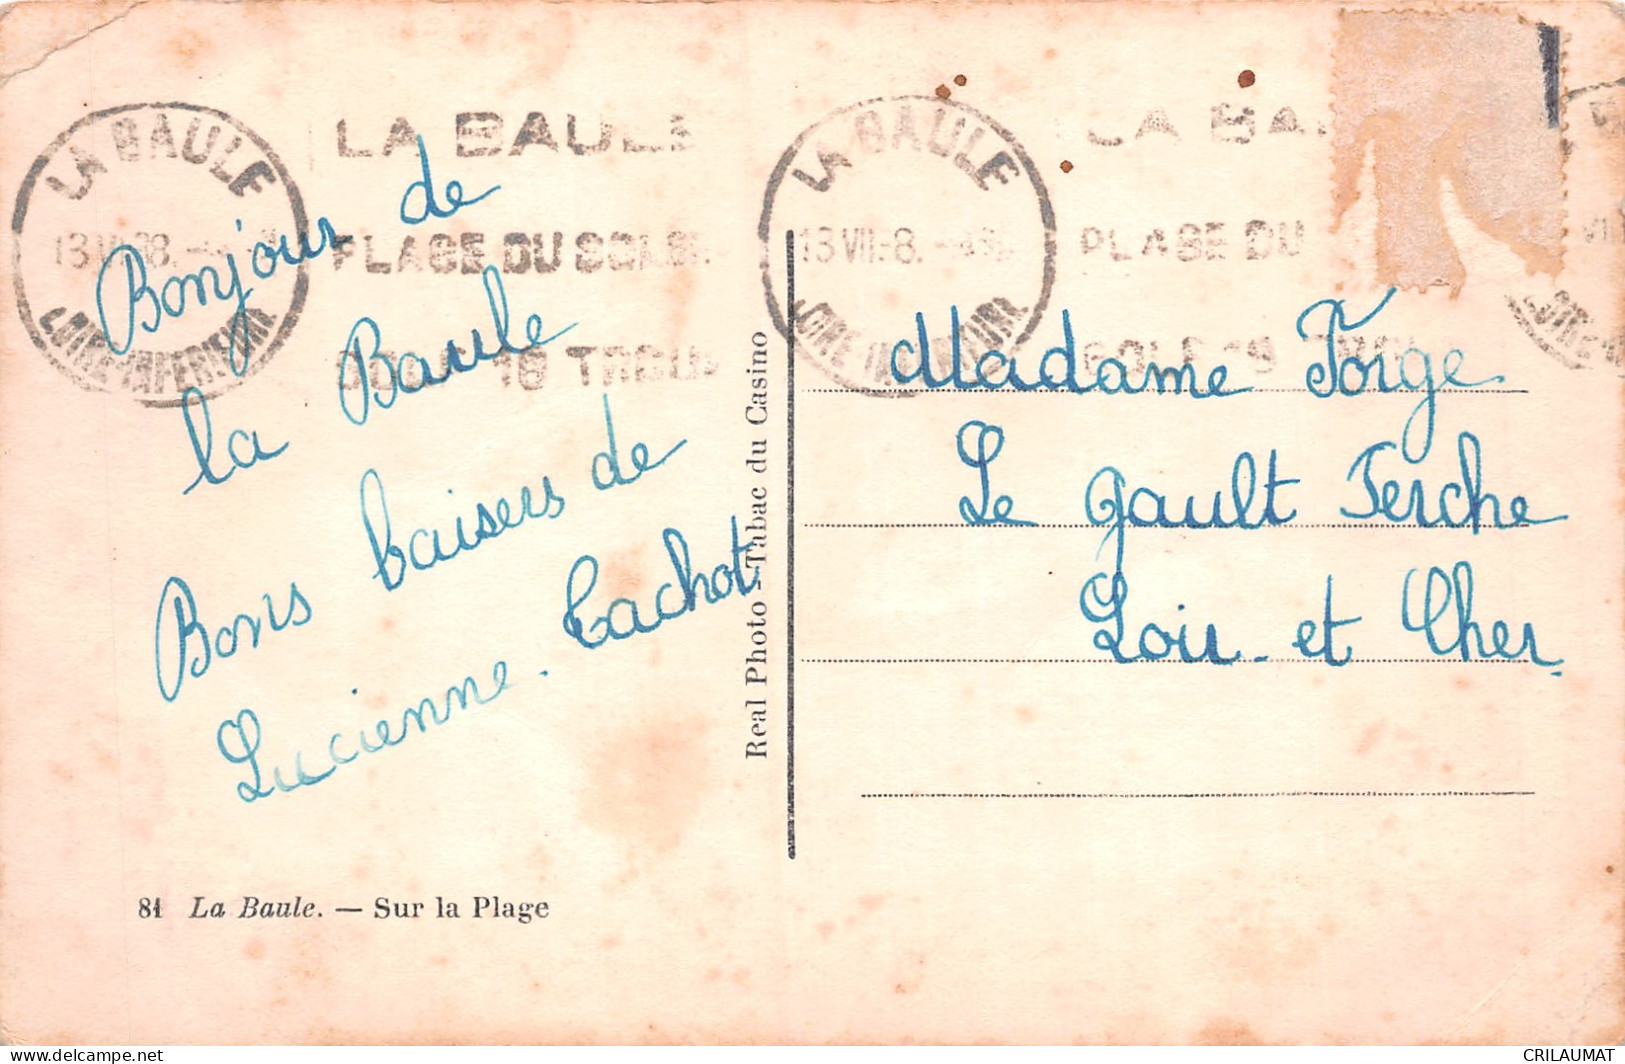 LA BAULE
LOIRE-INFERIEURE
LA BAULE
PLAGE DU SOLEIL
18 TROUS
LA BAULE
13 VII
LOIRE-INFERIEURE
LA BA
PLAGE DU
GOLF 18
Bonjour de
la Baule
Bons baisers de
Lucienne. Cachot
81 La Baule. — Sur la Plage
Real Photo - Tabac du Casino
Madame Forge
Le Gault Perche
Loir - et Cher
CRILAUMAT